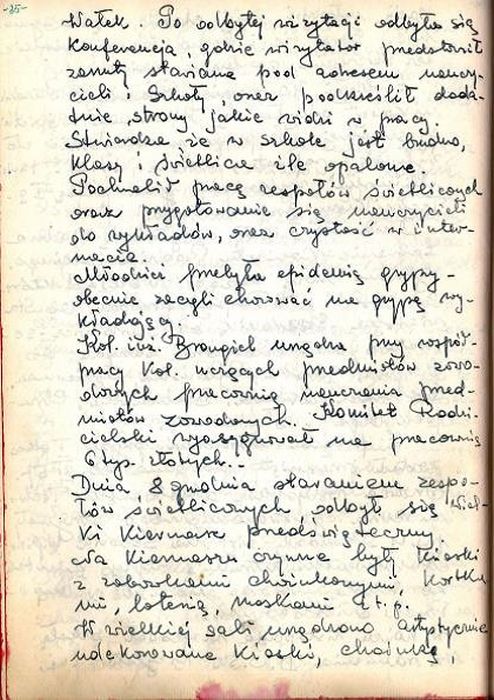 -35-
Wałek. Po odbytej wizytacji odbyła się
Konferencja, gdzie wizytator przedstawił
zarzuty stawiane pod adresem nauczy-
cieli i Szkoły, oraz podkreślił doda-
tnie strony jakie widzi w pracy.
Stwierdza że w szkole jest brudno,
klasy i świetlica źle opalone.
Pochwalił pracę zespołów świetlicowych
oraz przygotowanie się nauczycieli
do wykładów, oraz czystość w inter-
nacie.
Młodzież przebyła epidemię grypy -
obecnie zaczęli chorować na grypę wy-
kładający.
Kol. inż. urządza przy współ-
pracy Kol. uczących przedmiotów zawo-
dowych pracownię nauczania przed-
miotów zawodowych. Komitet Rodzi-
cielski wyasygnował na pracownię
6 tys. złotych. -
Dnia, 8 grudnia staraniem zespo-
łów świetlicowych odbył się wiel-
ki Kiermasz przedświąteczny.
Na Kiermaszu czynne były kioski
z zabawkami choinkowymi,
mi, loterią, maskami i t. p.
W wielkiej sali urządzono artystycznie
udekorowane kioski, choinkę,